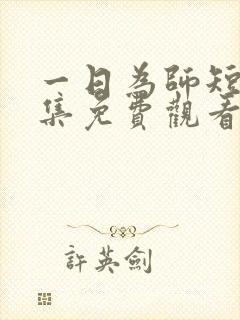 一日為師短
集免費觀看
許英劍